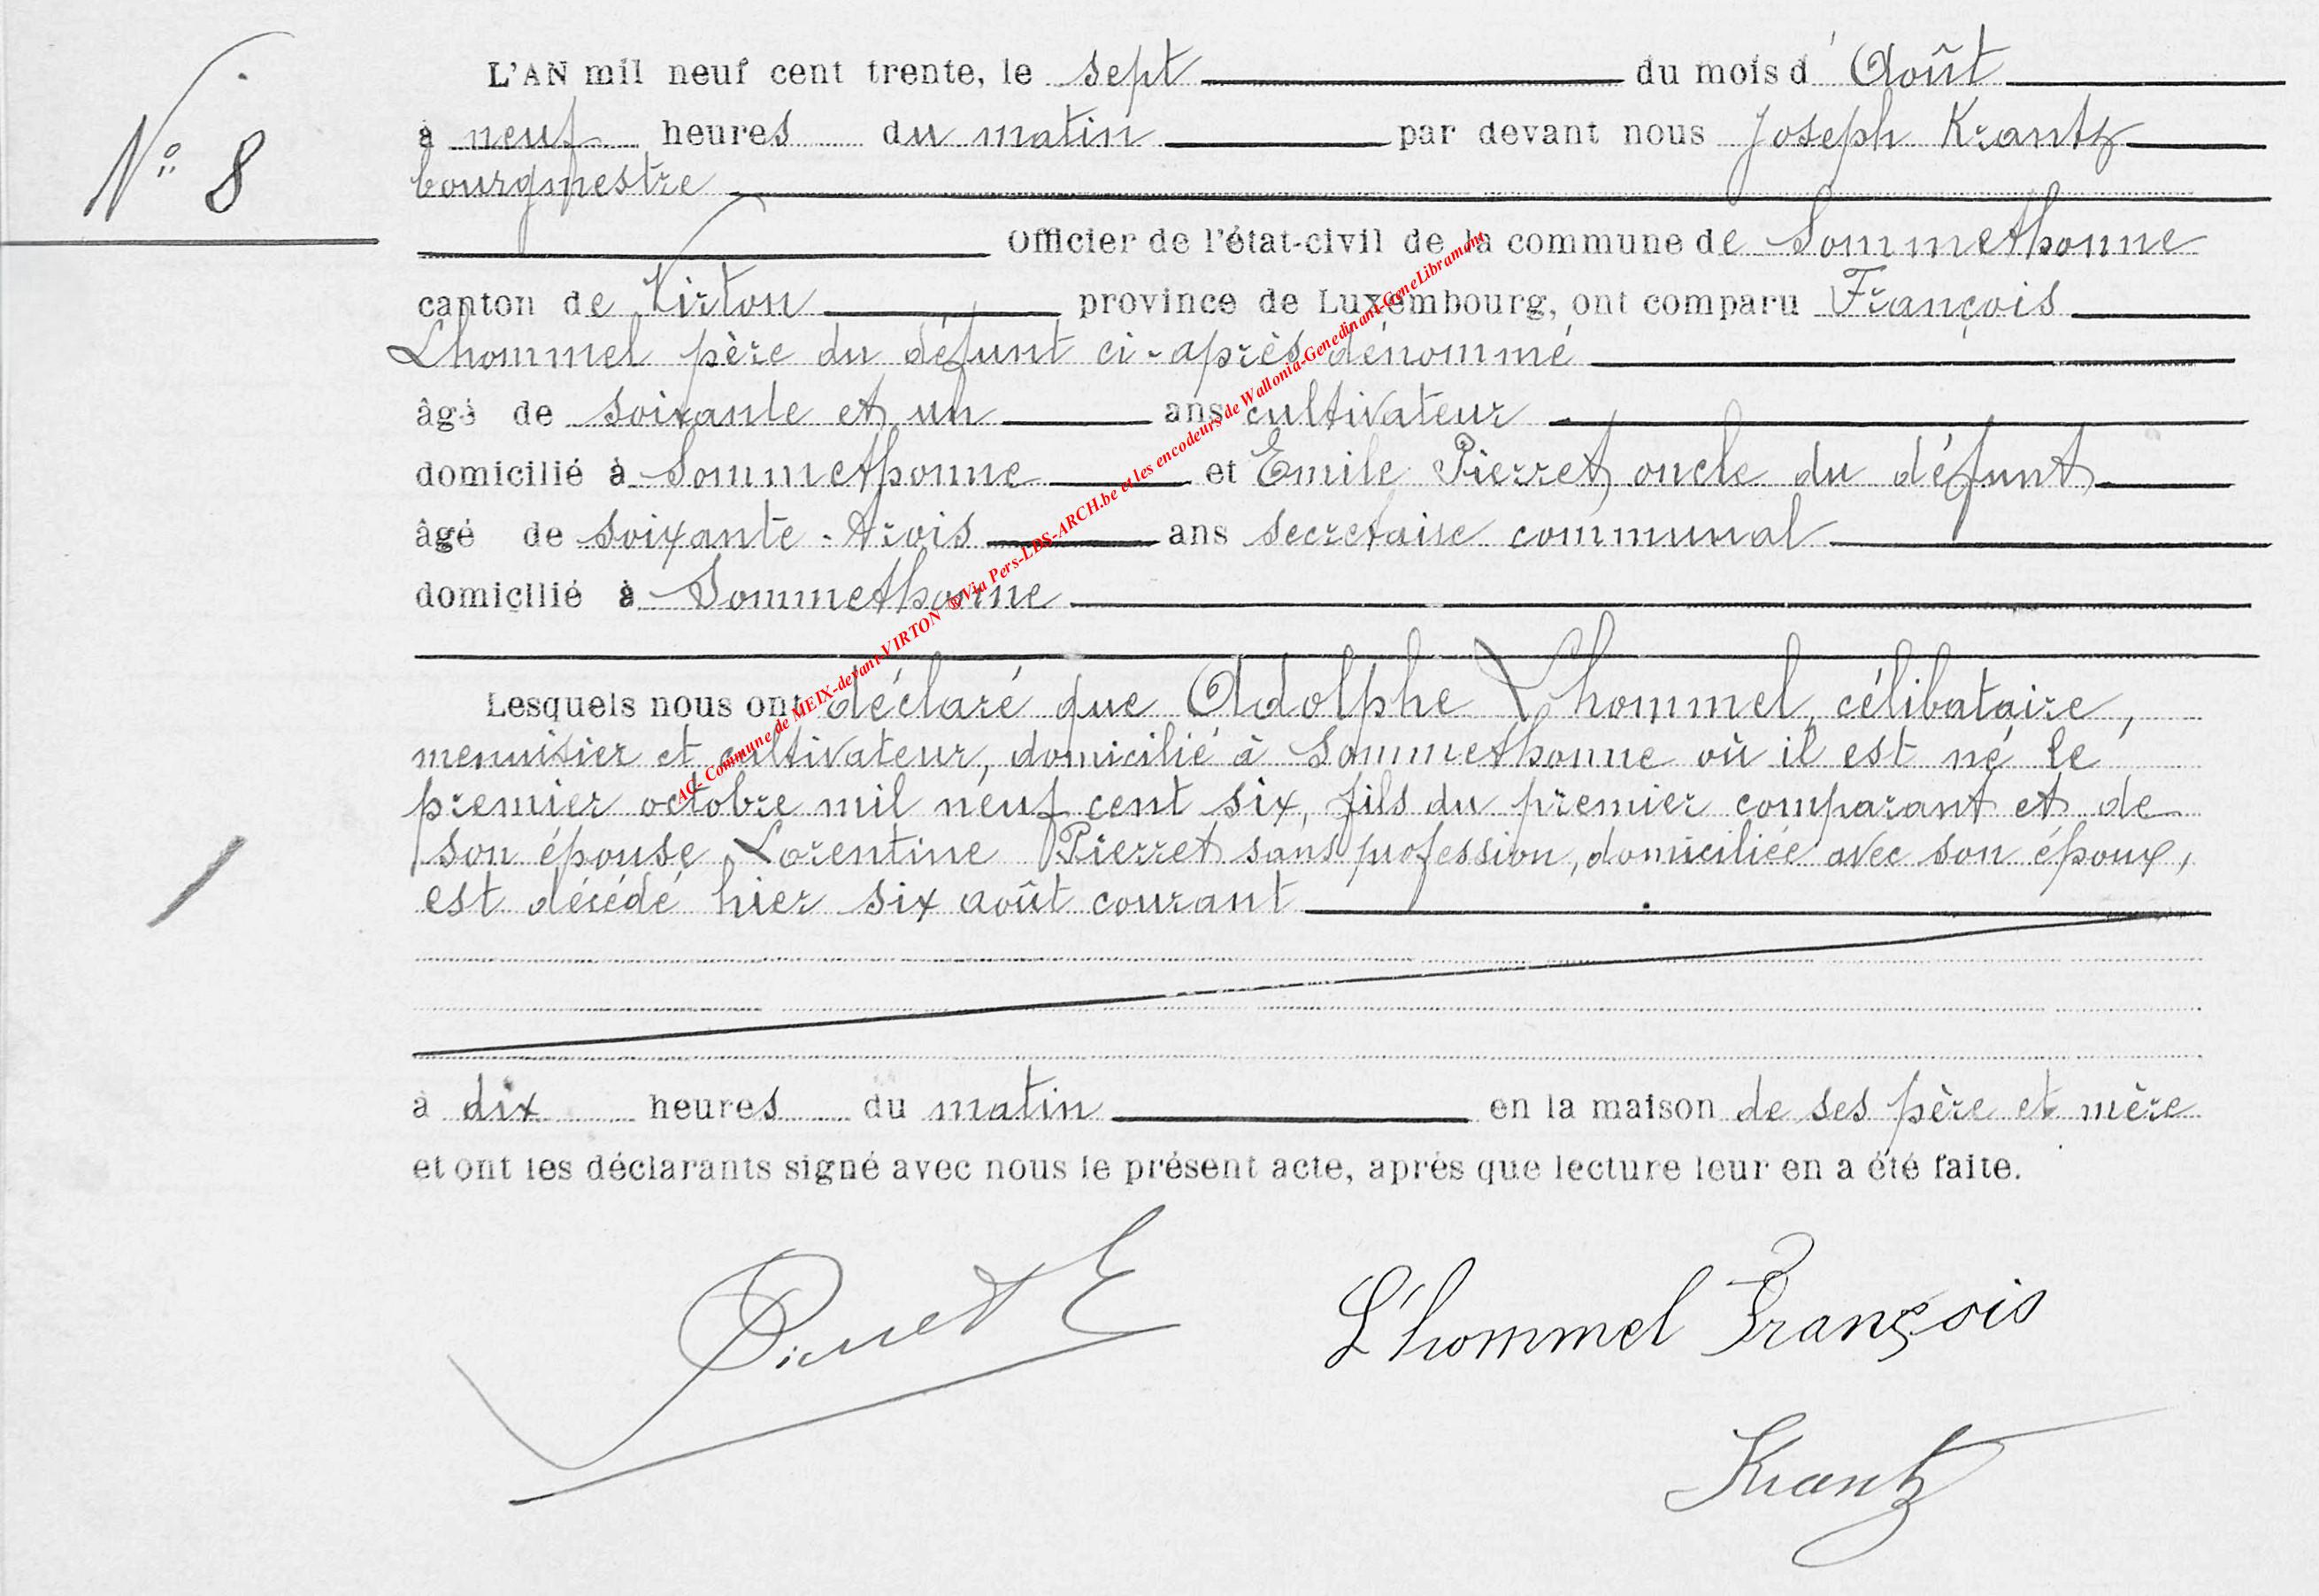 L'AN mil neuf cent trente, le sept du mois d' Août
N° 8
à neuf heures du matin par devant nous Joseph Krantz
bourgmestre
Officier de l'état-civil de la commune de Sommethonne
canton de Virton province de Luxembourg, ont comparu François
Lhommel père du défunt ci-après dénommé
âgé de soixante et un ans cultivateur
domicilié à Sommethonne et Emile Pierret oncle du défunt
âgé de soixante-trois ans secretaire communal
domicilié à Sommethonne
Lesquels nous ont déclaré que Adolphe Lhommel, célibataire,
menuisier et cultivateur, domicilié à Sommethonne où il est né le
premier octobre mil neuf cent six, fils du premier comparant et de
son épouse Lorentine Pierret sans profession, domiciliée avec son époux,
est décédé hier six août courant
à dix heures du matin en la maison de ses père et mère
et ont les déclarants signé avec nous le présent acte, après que lecture leur en a été faite.
Pierret E
L'hommel François
Krantz
AC- Commune de MEIX-devant-VIRTON ®Via Pers-LDS-ARCH.be et les encodeurs de Wallonia-Genedinant-GeneLibramont